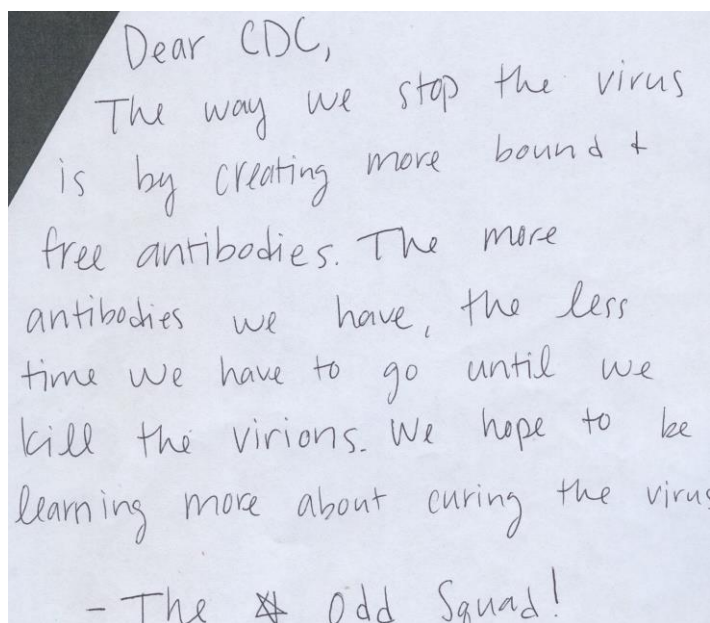 Dear CDC,
The way we stop the virus
is by creating more bound +
free antibodies. The more
antibodies we have, the less
time we have to go until we
kill the virions. We hope to be
learning more about curing the virus
- The Odd Squad!